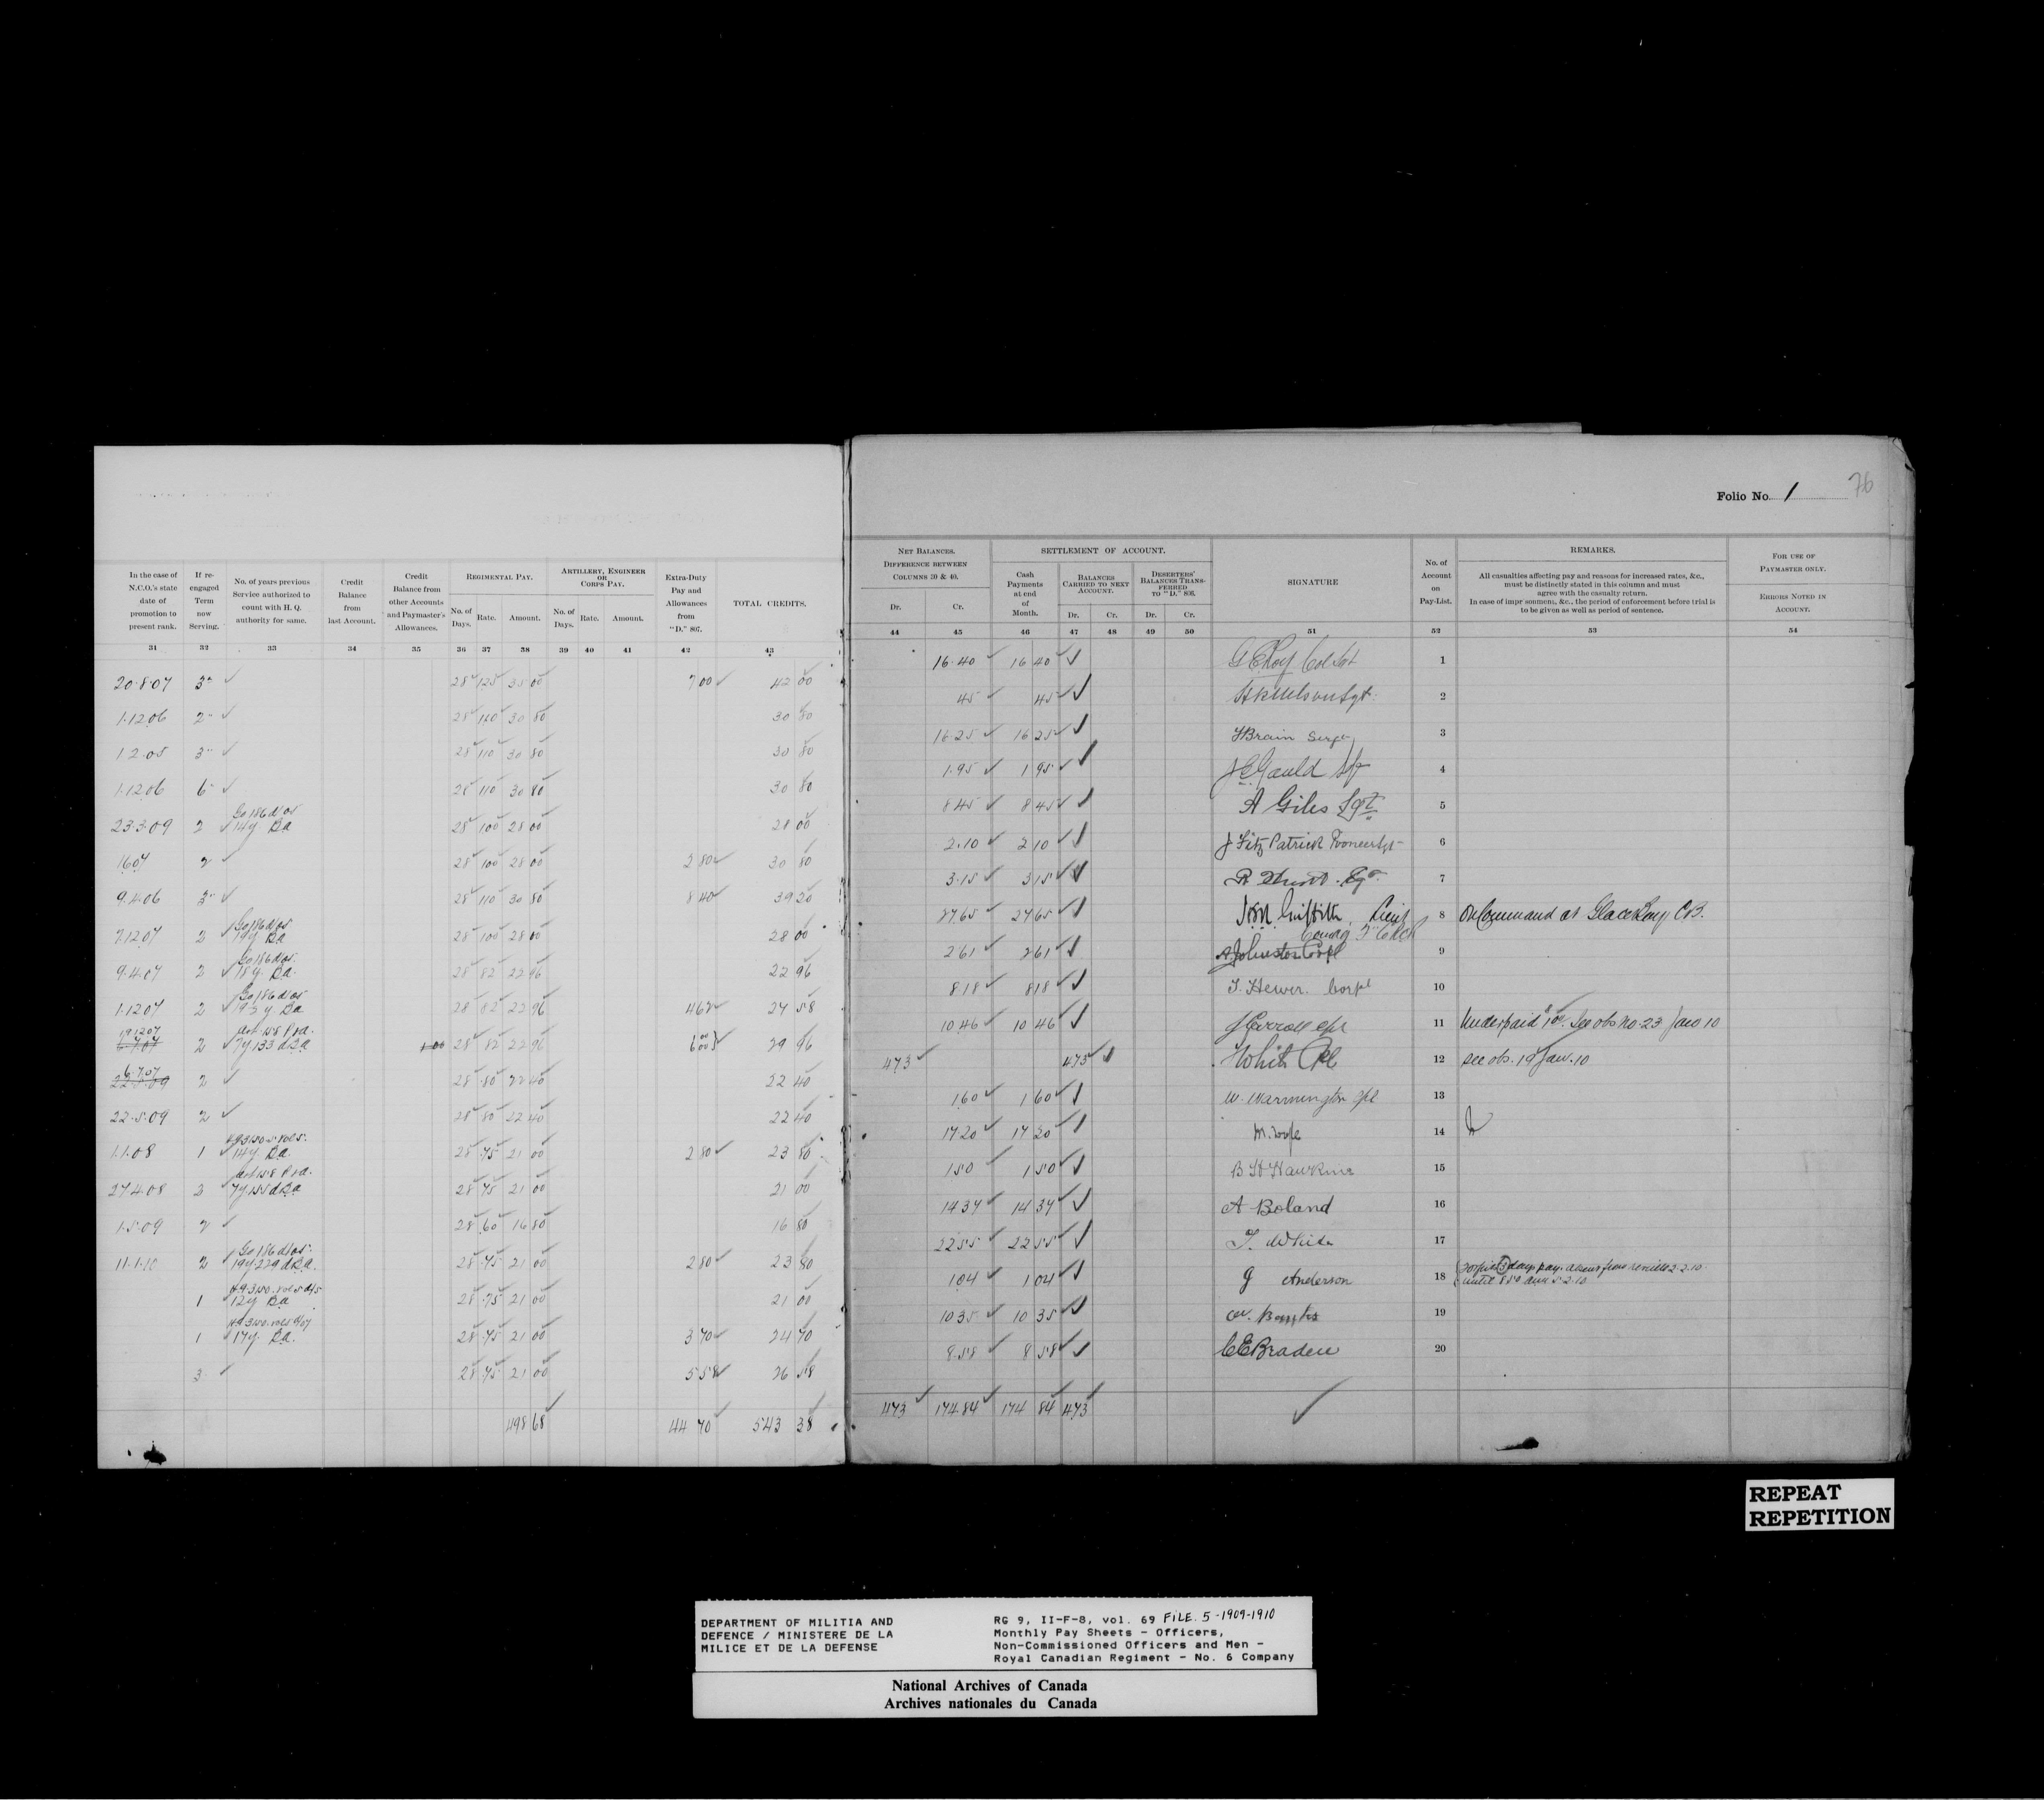 Folio No. 1
76
In the case of N.C.O.'s state date of promotion to present rank.
If re-engaged Term now Serving.
No. of years previous Service authorized to count with H. Q. authority for same.
Credit Balance from last Account.
Credit Balance from other Accounts and Paymaster's Allowances.
REGIMENTAL PAY.
No. of Days. Rate. Amount.
ARTILLERY, ENGINEER OR CORPS PAY.
No. of Days. Rate. Amount.
Extra-Duty Pay and Allowances from "D." 807.
TOTAL CREDITS.
31 32 33 34 35 36 37 38 39 40 41 42 43
20·8·07 3 28 125 35 00 7 00 42 00
1·12·06 2 28 110 30 80 30 80
1·2·05 3 28 110 30 80 30 80
1·12·06 6 28 110 30 80 30 80
Go 186 d/05
23·3·09 2 14y Da 28 100 28 00 28 00
1·6·07 2 28 100 28 00 2 80 30 80
9·4·06 3 28 110 30 80 8 40 39 20
Go 186 d/05
7·12·07 2 19y Da 28 100 28 00 28 00
Go 186 d/05
9·4·07 2 18y. Da. 28 82 22 96 22 96
Go 186 d/05
1·12·07 2 28 82 22 96 4 62 27 58
19·12·07
2 7y 133 d 28 82 22 96 6 00 29 96
6·7·07
2 28 80 22 40 22 40
22·5·09 2 28 80 22 40 22 40
1·1·08 1 14y. Da. 28 75 21 00 2 80 23 80
27·4·08 3 28 75 21 00 21 00
1·5·09 2 28 60 16 80 16 80
Go 186 d/05
11·1·10 2 19y 229 d 28 75 21 00 2 80 23 80
1 12y Da 28 75 21 00 21 00
1 17y. Da. 28 75 21 00 3 70 24 70
3 28 75 21 00 5 58 26 58
498 68 44 70 543 38
NET BALANCES.
DIFFERENCE BETWEEN COLUMNS 30 & 40.
Dr. Cr.
SETTLEMENT OF ACCOUNT.
Cash Payments at end of Month.
BALANCES CARRIED TO NEXT ACCOUNT.
Dr. Cr.
DESERTERS' BALANCES TRANSFERRED TO "D." 808.
Dr. Cr.
SIGNATURE
No. of Account on Pay-List.
REMARKS.
All casualties affecting pay and reasons for increased rates, &c.,
must be distinctly stated in this column and must
agree with the casualty return.
In case of imprisonment, &c., the period of enforcement before trial is
to be given as well as period of sentence.
FOR USE OF PAYMASTER ONLY.
ERRORS NOTED IN ACCOUNT.
44 45 46 47 48 49 50 51 52 53 54
16·40 16 40 1
45 45 2
16·25 16 25 J Brain Sergt 3
1·95 1 95 J E Gauld Sgt 4
8 45 8 45 A Giles Sgt 5
2·10 2 10 J Fitz Patrick Pioneer Sgt 6
3·15 3 15 7
27 65 27 65 Griffith, Lieut 8 On Command at Glace Bay C B.
2 61 2 61 A Johnston Corpl 9
8 18 8 18 T. Hewer. Corpl 10
10 46 10 46 J Carroll Cpl 11 Underpaid See obs No. 23 Jan 10
4 73 4 73 White Cpl 12 see obs. 19 Jan. 10
1 60 1 60 W. Warmington Cpl 13
17 20 17 20 14
1 50 1 50 B H Hawkins 15
14 37 14 37 A Boland 16
22 55 22 55 T. White 17
1 04 1 04 J Anderson 18
10 35 10 35 19
8 58 8 58 C E Braden 20
4 73 174 84 174 84 4 73
REPEAT
REPETITION
DEPARTMENT OF MILITIA AND
DEFENCE / MINISTERE DE LA
MILICE ET DE LA DEFENSE
RG 9, II-F-8, vol. 69 FILE. 5 -1909-1910
Monthly Pay Sheets - Officers,
Non-Commissioned Officers and Men -
Royal Canadian Regiment - No. 6 Company
National Archives of Canada
Archives nationales du Canada